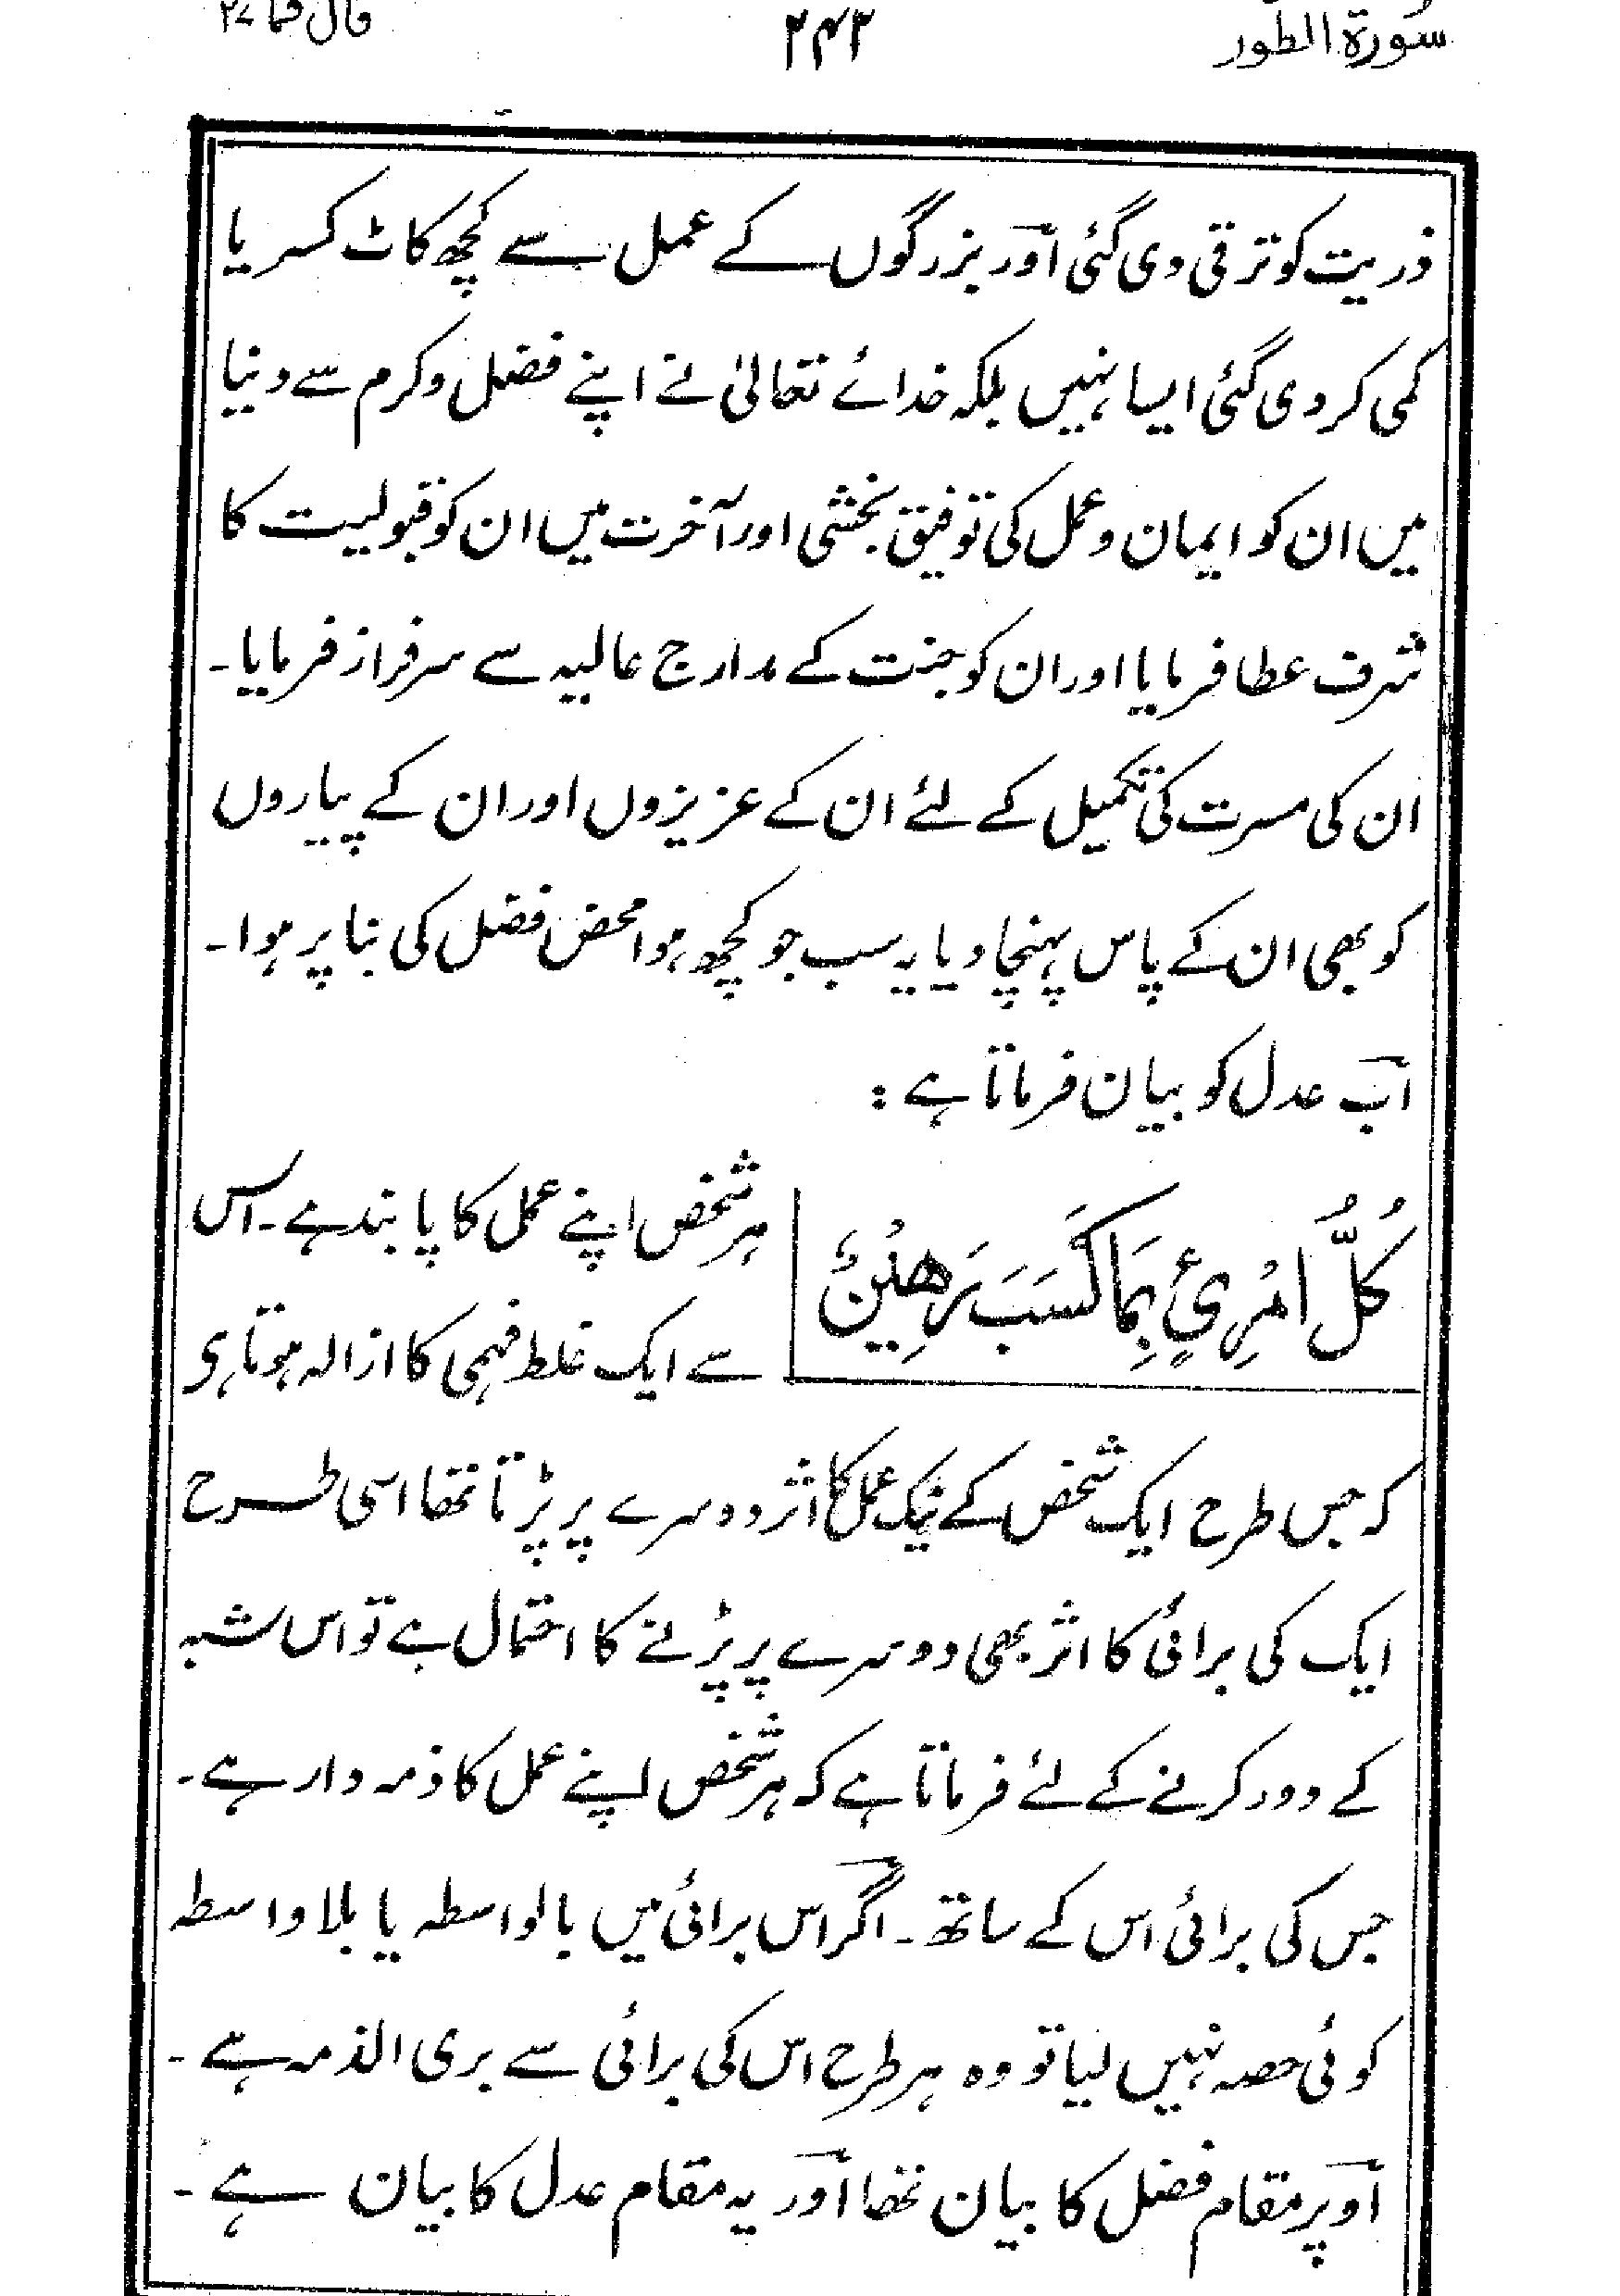 سُورة الطور
۲۴۳
قال فما ۲۷
ذریت کو ترقی دی گئی اور بزرگوں کے عمل سے کچھ کاٹ کسر یا
کمی کر دی گئی ایسا نہیں بلکہ خدائے تعالیٰ نے اپنے فضل و کرم سے دنیا
میں ان کو ایمان و عمل کی توفیق بخشی اور آخرت میں ان کو قبولیت کا
شرف عطا فرمایا اور ان کو جنت کے مدارج عالیہ سے سرفراز فرمایا۔
ان کی مسرت کی تکمیل کے لئے ان کے عزیزوں اور ان کے پیاروں
کو بھی ان کے پاس پہنچا دیا یہ سب جو کچھ ہوا محض فضل کی بنا پر ہوا۔
اب عدل کو بیان فرماتا ہے :
كُلُّ امْرِئٍ بِمَا كَسَبَ رَهِيْنٌ
ہر شخص اپنے عمل کا پابند ہے۔ اس
سے ایک غلط فہمی کا ازالہ ہوتا ہی
کہ جس طرح ایک شخص کے نیک عمل کا اثر دوسرے پر پڑتا تھا اسی طرح
ایک کی برائی کا اثر بھی دوسرے پر پڑنے کا احتمال ہے تو اس شبہ
کے دور کرنے کے لئے فرماتا ہے کہ ہر شخص اپنے عمل کا ذمہ دار ہے۔
جس کی برائی اس کے ساتھ۔ اگر اس برائی میں بالواسطہ یا بلا واسطہ
کوئی حصہ نہیں لیا تو وہ ہر طرح اس کی برائی سے بری الذمہ ہے۔
اوپر مقام فضل کا بیان تھا اور یہ مقام عدل کا بیان ہے۔